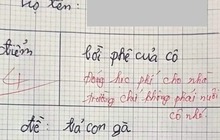 Họ tên:
điểm
lời phê của cô
Đóng học phí cho nhà
trường chứ không phải nuôi
cô nhé!
đề: tả con gà